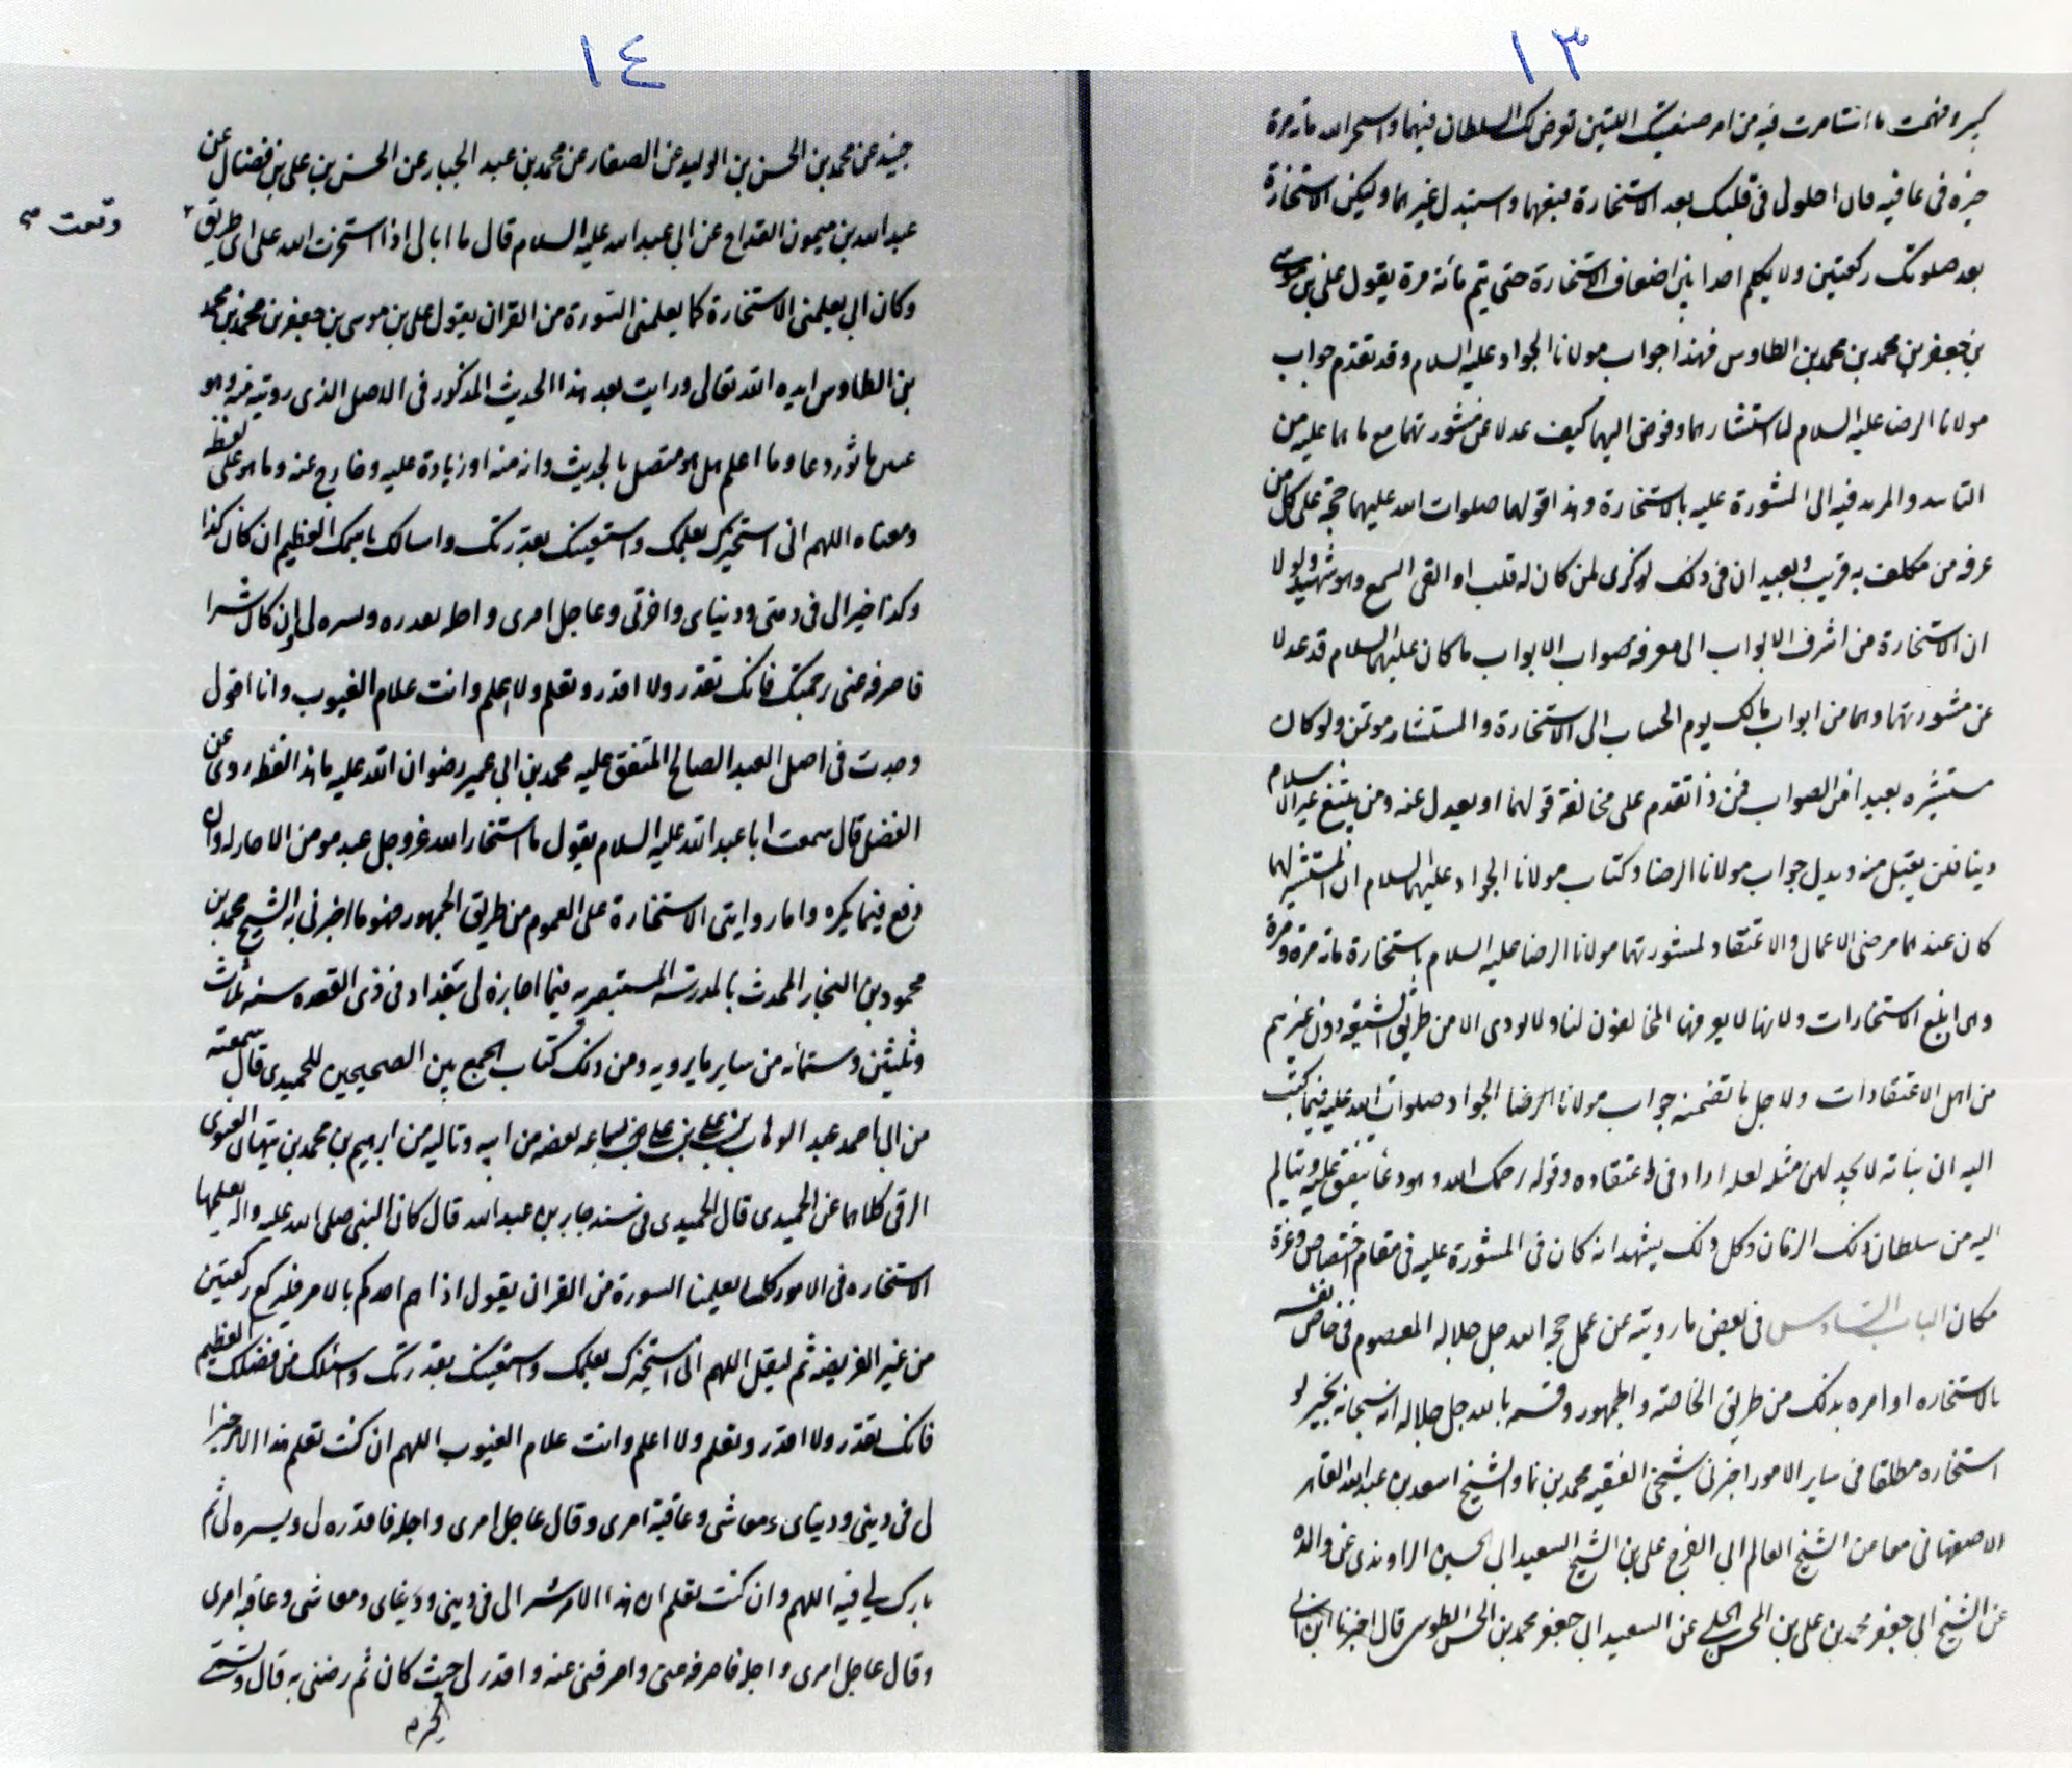 ١٣
كبير وفهمت ما استامرت فيه من امر صنيعتيك اللتين تعرض لك السلطان فيهما واستخر الله مائة مرة
خيره في عافيه فان احلولى في قلبك بعد الاستخارة فبعهما واستبدل غيرهما وليكن الاستخارة
بعد صلوتك ركعتين ولا يكلم احدا بين اضعاف الاستخارة حتى يتم مائة مرة يقول علي بن موسى
بن جعفر بن محمد بن محمد بن الطاوس فهذا جواب مولانا الجواد عليه السلام وقد تقدم جواب
مولانا الرضا عليه السلام لما استشارهما وفوض اليهما كيف عدلا عن مشورتهما مع ما هما عليه من
التاييد والمزيد فيه الى المشورة عليه بالاستخارة وهذا قولهما صلوات الله عليهما حجة على كل من
عرفه من مكلف به قريب وبعيد ان في ذلك لذكرى لمن كان له قلب او القى السمع وهو شهيد ولولا
ان الاستخارة من اشرف الابواب الى معرفة صواب الابواب ما كان عليهما السلام قد عدلا
عن مشورتهما وهما من ابواب مالك يوم الحساب الى الاستخارة والمستشار موتمن ولو كان
مستشيره بعيدا من الصواب فمن ذا تقدم على مخالفة قولهما او يعدل عنه ومن يبتغ غير الاسلام
دينا فلن يقبل منه ويدل جواب مولانا الرضا وكتاب مولانا الجواد عليهما السلام ان المستشير لهما
كان عندهما مرضى الاعمال والاعتقاد لمشورتهما مولانا الرضا عليه السلام باستخارة مائة مرة ومرة
وهى ابلغ الاستخارات ولانها لا يعرفها المخالفون لنا ولا تودى الا من طريق الشيعة دون غيرهم
من اهل الاعتقادات ولاجل ما تضمنه جواب مولانا الرضا الجواد صلوات الله عليه فيما كتب
اليه ان بناته لا يجد لهن مثله لعله اراد في اعتقاده وقوله رحمك الله وهو دعا يتفق عليه ويتالم
اليه من سلطان ذلك الزمان وكل ذلك يشهد انه كان في المشورة عليه في مقام اختصاص وعزة
مكان الباب السادس في بعض ما رويته عن عمل حجة الله جل جلاله المعصوم في خاص نفسه
بالاستخاره او امره بذلك من طريق الخاصة والجمهور وقسمه بالله جل جلاله انه سبحانه يخير لو
استخاره مطلقا في ساير الامور اخبرني شيخي الفقيه محمد بن نما والشيخ اسعد بن عبد القاهر
الاصفهاني معا من الشيخ العالم ابي الفرج علي بن الشيخ السعيد ابي الحسين الراوندى عن والده
عن الشيخ ابي جعفر محمد بن علي بن المحسن الحلبي عن السعيد ابي جعفر محمد بن الحسن الطوسي قال اخبرنا ابن ابي
١٤
جيد عن محمد بن الحسن بن الوليد عن الصفار عن محمد بن عبد الجبار عن الحسن بن علي بن فضال عن
عبد الله بن ميمون القداح عن ابي عبد الله عليه السلام قال ما ابالي اذا استخرت الله على اى طريق
وقعت
وكان ابي يعلمني الاستخارة كما يعلمني السورة من القران يقول علي بن موسى بن جعفر بن محمد بن محمد
بن الطاوس ايده الله تعالى ورايت بعد هذا الحديث المذكور في الاصل الذى رويته منه وهو
دعا وما اعلم هل هو متصل بالحديث وانه منه او زيادة عليه وخارج عنه وما هو على لفظه
ومعناه اللهم انى استخيرك بعلمك واستعينك بقدرتك واسالك باسمك العظيم ان كان كذا
وكذا خيرا لى فى دينى ودنياى واخرتى وعاجل امرى واجله فقدره ويسره لى وان كان شرا
فاصرفه عنى برحمتك فانك تقدر ولا اقدر وتعلم ولا اعلم وانت علام الغيوب وانا اقول
وجدت فى اصل العبد الصالح المتفق عليه محمد بن ابي عمير رضوان الله عليه ما هذا لفظه روى عن
الفضل قال سمعت ابا عبد الله عليه السلام يقول ما استخار الله عز وجل عبد مومن الا خار له وان
وقع فيما يكره واما روايتى الاستخارة على العموم من طريق الجمهور فهو ما اخبرنى به الشيخ محمد بن
محمود بن النجار المحدث بالمدرسة المستنصريه فيما اجازه لى ببغداد فى ذى القعده سنه ثلاث
وثلثين وستمائه من ساير ما يرويه ومن ذلك كتاب الجمع بين الصحيحين للحميدى قال سمعته
من ابى احمد عبد الوهاب بن علي بن علي بسماعه بعضه من ابيه وتاليه من ابرهيم بن محمد بن نبهان الغنوى
الرقى كلاهما عن الحميدى قال الحميدى فى مسند جابر بن عبد الله قال كان النبى صلى الله عليه واله يعلمنا
الاستخاره فى الامور كما يعلمنا السورة من القران يقول اذا هم احدكم بالامر فليركع ركعتين
من غير الفريضه ثم ليقل اللهم انى استخيرك بعلمك واستعينك بقدرتك واسئلك من فضلك العظيم
فانك تقدر ولا اقدر وتعلم ولا اعلم وانت علام الغيوب اللهم ان كنت تعلم هذا الامر خيرا
لى فى دينى ودنياى ومعاشى وعاقبة امرى وقال عاجل امرى واجله فاقدره لى ويسره لى ثم
بارك لي فيه اللهم وان كنت تعلم ان هذا الامر شرا لى فى دينى ودنياى ومعاشى وعاقبه امرى
وقال عاجل امرى واجله فاصرفه عنى واصرفنى عنه واقدر لى حيث كان ثم رضنى به قال ويسمى